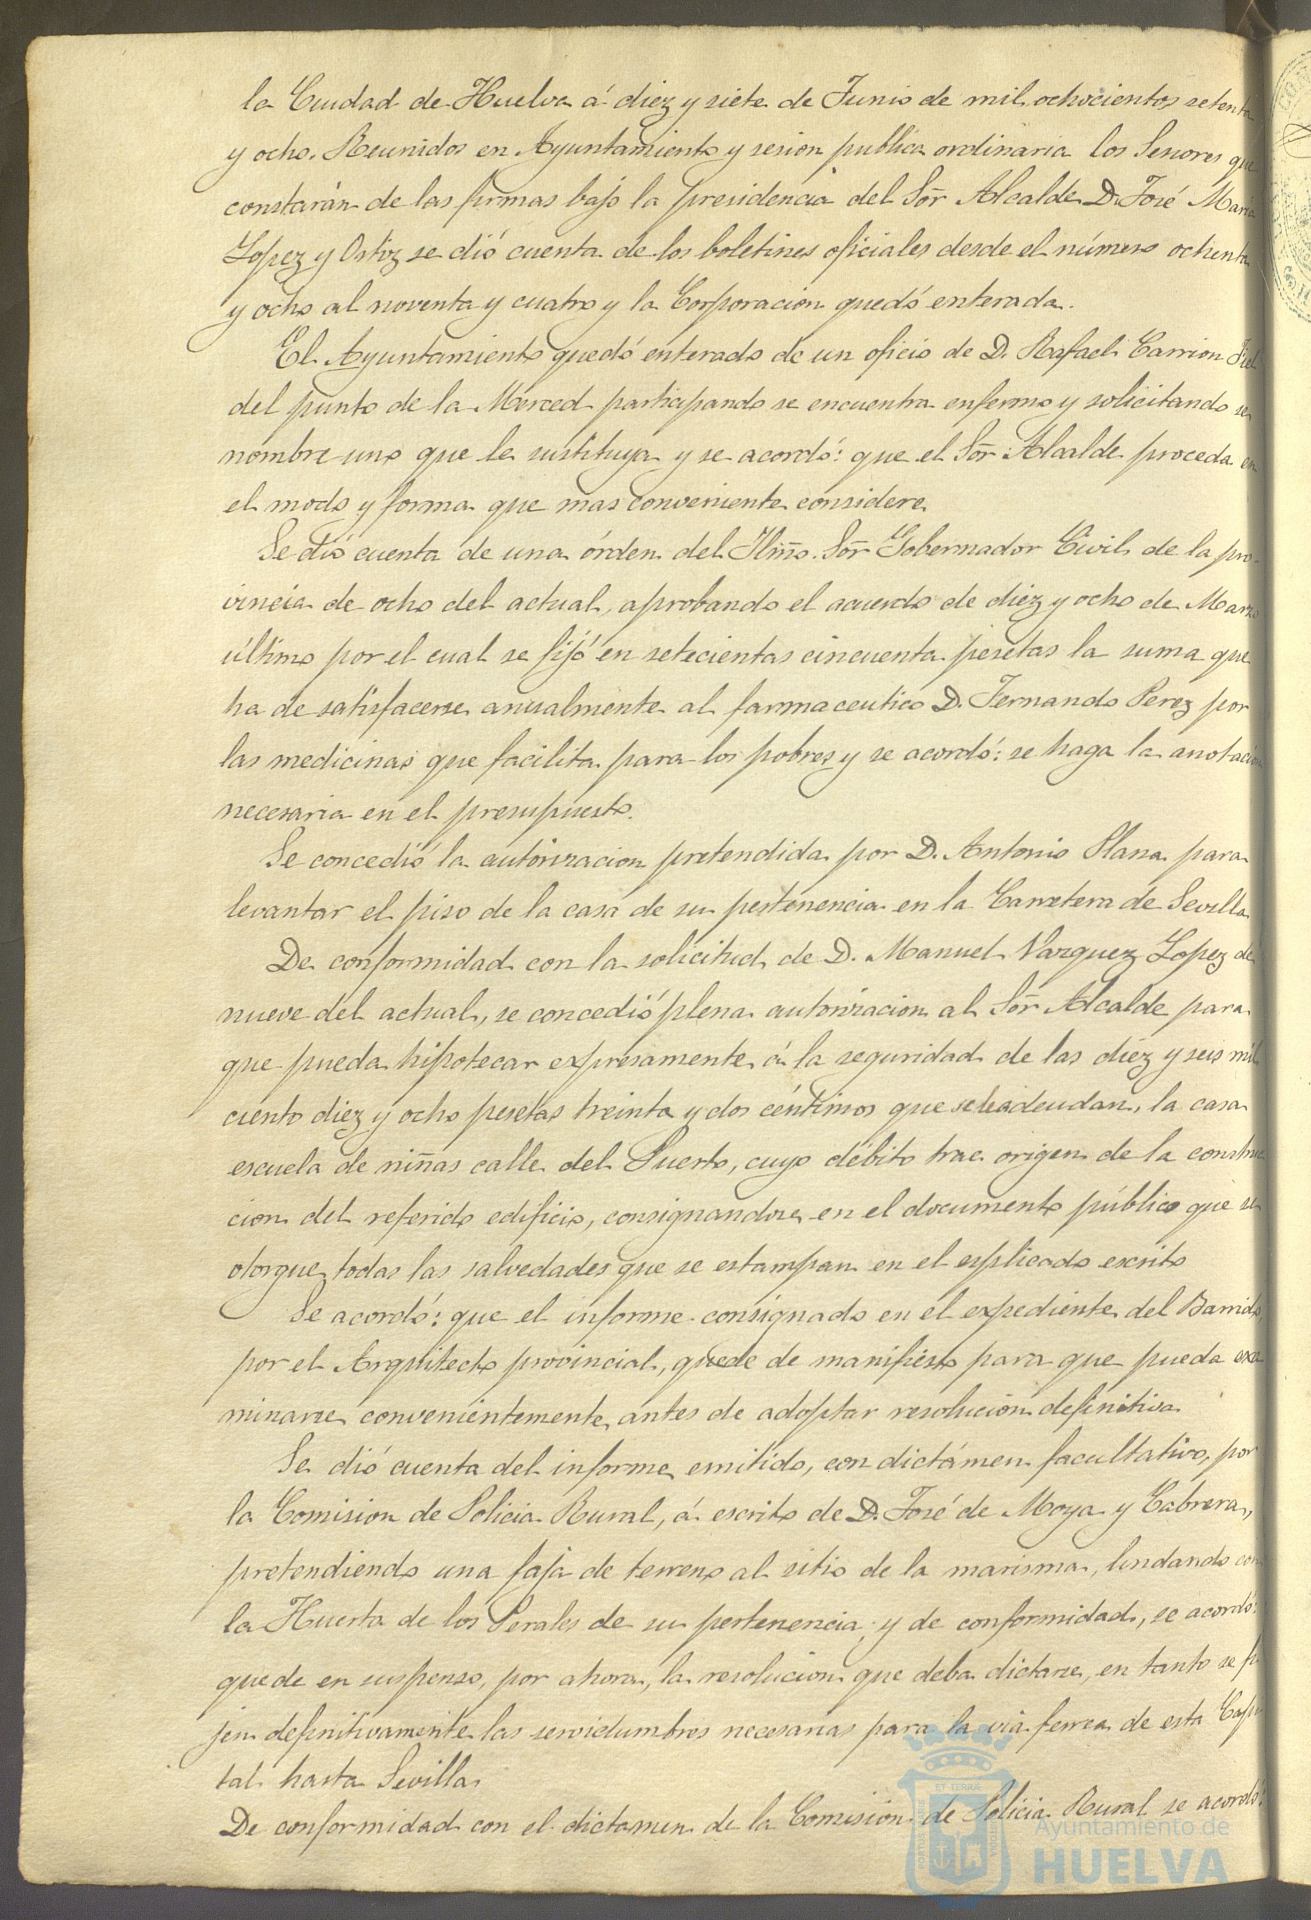 la Ciudad de Huelva á diez y siete de Junio de mil ochocientos setenta
y ocho. Reunidos en Ayuntamiento y sesion publica ordinaria los Señores que
constarán de las firmas bajo la presidencia del Sor̃ Alcalde D. José Maria
Lopez y Ortiz se dió cuenta de los boletines oficiales desde el número ochenta
y ocho al noventa y cuatro y la Corporacion quedó enterada.
El Ayuntamiento quedó enterado de un oficio de D. Rafael Carrion Fiel
del punto de la Merced participando se encuentra enfermo y solicitando se
nombre uno que le sustituya y se acordó: que el Sor̃ Alcalde proceda en
el modo y forma que mas conveniente considere.
Se dió cuenta de una órden del Iltm̃o. Sor̃ Gobernador Civil de la pro-
vincia de ocho del actual, aprobando el acuerdo de diez y ocho de Marzo
último por el cual se fijó en setecientas cincuenta pesetas la suma que
ha de satisfacerse anualmente al farmaceutico D. Fernando Perez por
las medicinas que facilita para los pobres y se acordó: se haga la anotacion
necesaria en el presupuesto.
Se concedió la autorizacion pretendida por D. Antonio Plana para
levantar el piso de la casa de su pertenencia en la Carretera de Sevilla
De conformidad con la solicitud de D. Manuel Vazquez Lopez de
nueve del actual, se concedió plena autorizacion al Sor̃ Alcalde para
que pueda hipotecar expresamente á la seguridad de las diez y seis mil
ciento diez y ocho pesetas treinta y dos céntimos que se le adeudan, la casa
escuela de niñas calle del Puerto, cuyo débito trae origen de la construc
cion del referido edificio, consignandose en el documento público que se
otorgue todas las salvedades que se estampan en el esplicado escrito
Se acordó: que el informe consignado en el expediente del Barrido,
por el Arquitecto provincial, quede de manifiesto para que pueda exa
minarse convenientemente antes de adoptar resolucion definitiva
Se dió cuenta del informe emitido, con dictámen facultativo, por
la Comision de Policia Rural, á escrito de D. José de Moya y Cabrera,
pretendiendo una faja de terreno al sitio de la marisma, lindando con
la Huerta de los Perales de su pertenencia; y de conformidad, se acordó:
quede en suspenso, por ahora, la resolucion que deba dictarse, en tanto se fi
jen definitivamente las servidumbres necesarias para la via ferrea de esta Capi
tal hasta Sevilla.
De conformidad con el dictamen de la Comisión de Policia Rural se acordó:
Ayuntamiento de
HUELVA